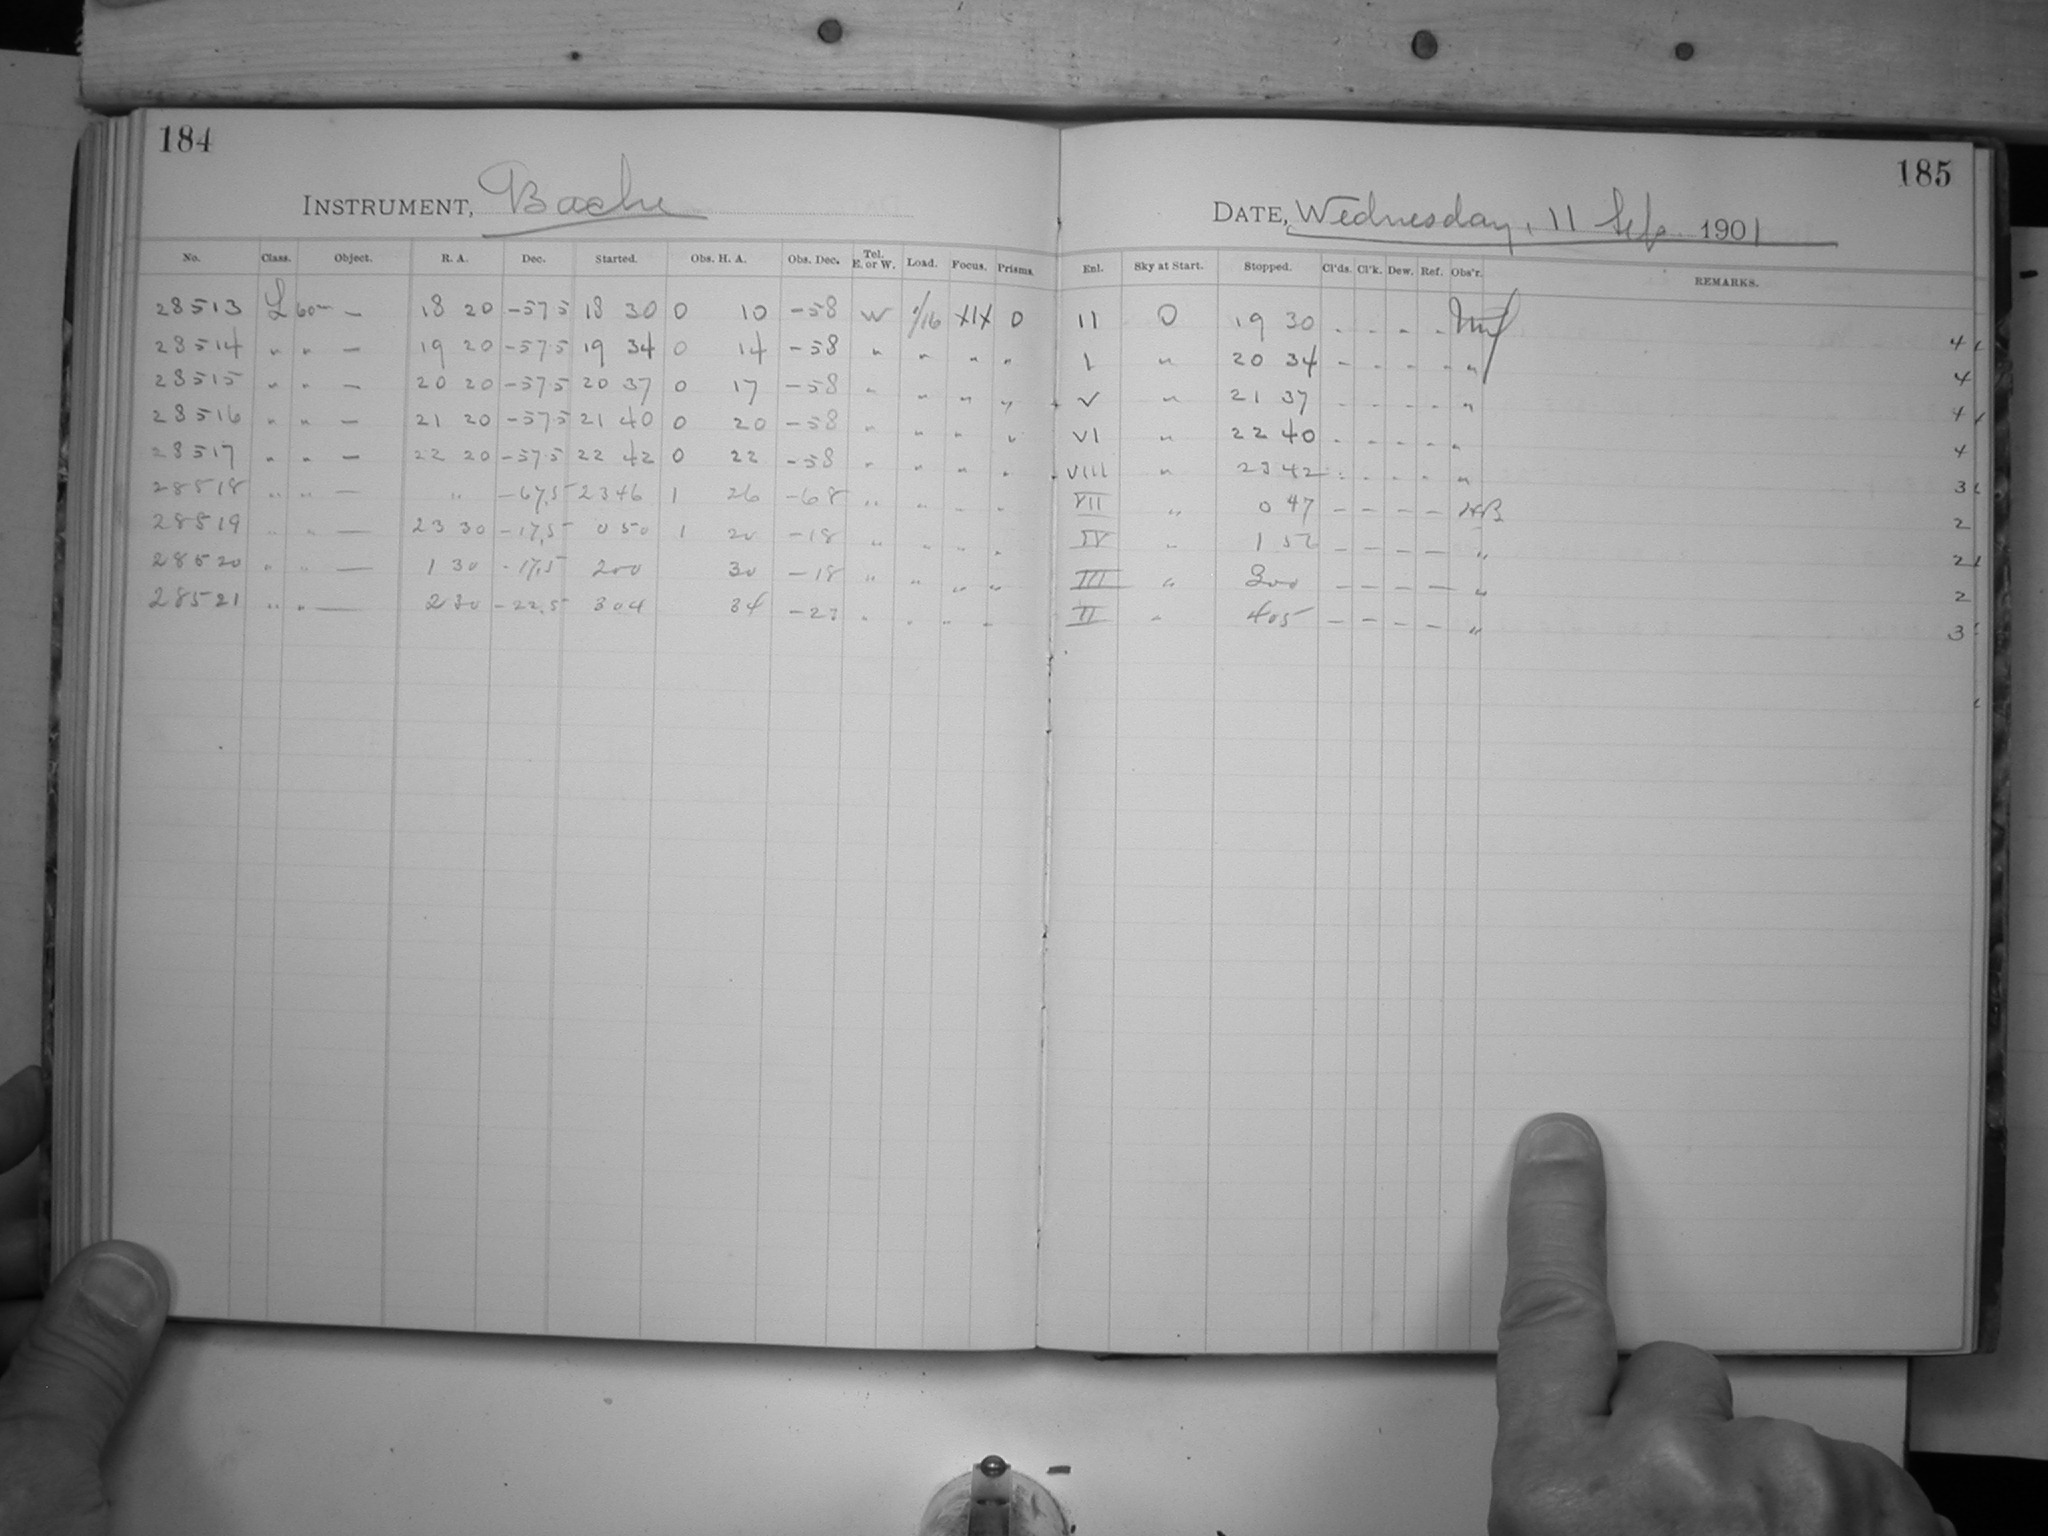 184
185
INSTRUMENT, Bache
DATE, Wednesday, 11 Sep. 1901
No. Class. Object. R. A. Dec. Started. Obs. H. A. Obs. Dec. Tel. E. or W. Load. Focus. Prisms. Enl. Sky at Start. Stopped. Cl'ds. Cl'k. Dew. Ref. Obs'r. REMARKS.
28513 L 60m — 18 20 -57.5 18 30 0 10 -58 W 1/16 XIX 0 II 0 19 30 - - - - 4
28514 " " — 19 20 -57.5 19 34 0 14 -58 " " " " I " 20 34 - - - - " 4
28515 " " — 20 20 -57.5 20 37 0 17 -58 " " " " V " 21 37 - - - - " 4
28516 " " — 21 20 -57.5 21 40 0 20 -58 " " " " VI " 22 40 - - - - " 4
28517 " " — 22 20 -57.5 22 42 0 22 -58 " " " " VIII " 23 42 - - - - " 3
28518 " " — " -67.5 23 46 1 26 -68 " " " " VII " 0 47 — — — — 2
28519 " " — 23 30 -17.5 0 50 1 20 -18 " " " " IV " 1 52 — — — — " 2
28520 " " — 1 30 -17.5 2 00 30 -18 " " " " III " 3 00 — — — — " 2
28521 " " — 2 30 -22.5 3 04 34 -23 " " " " II " 4 05 — — — — " 3